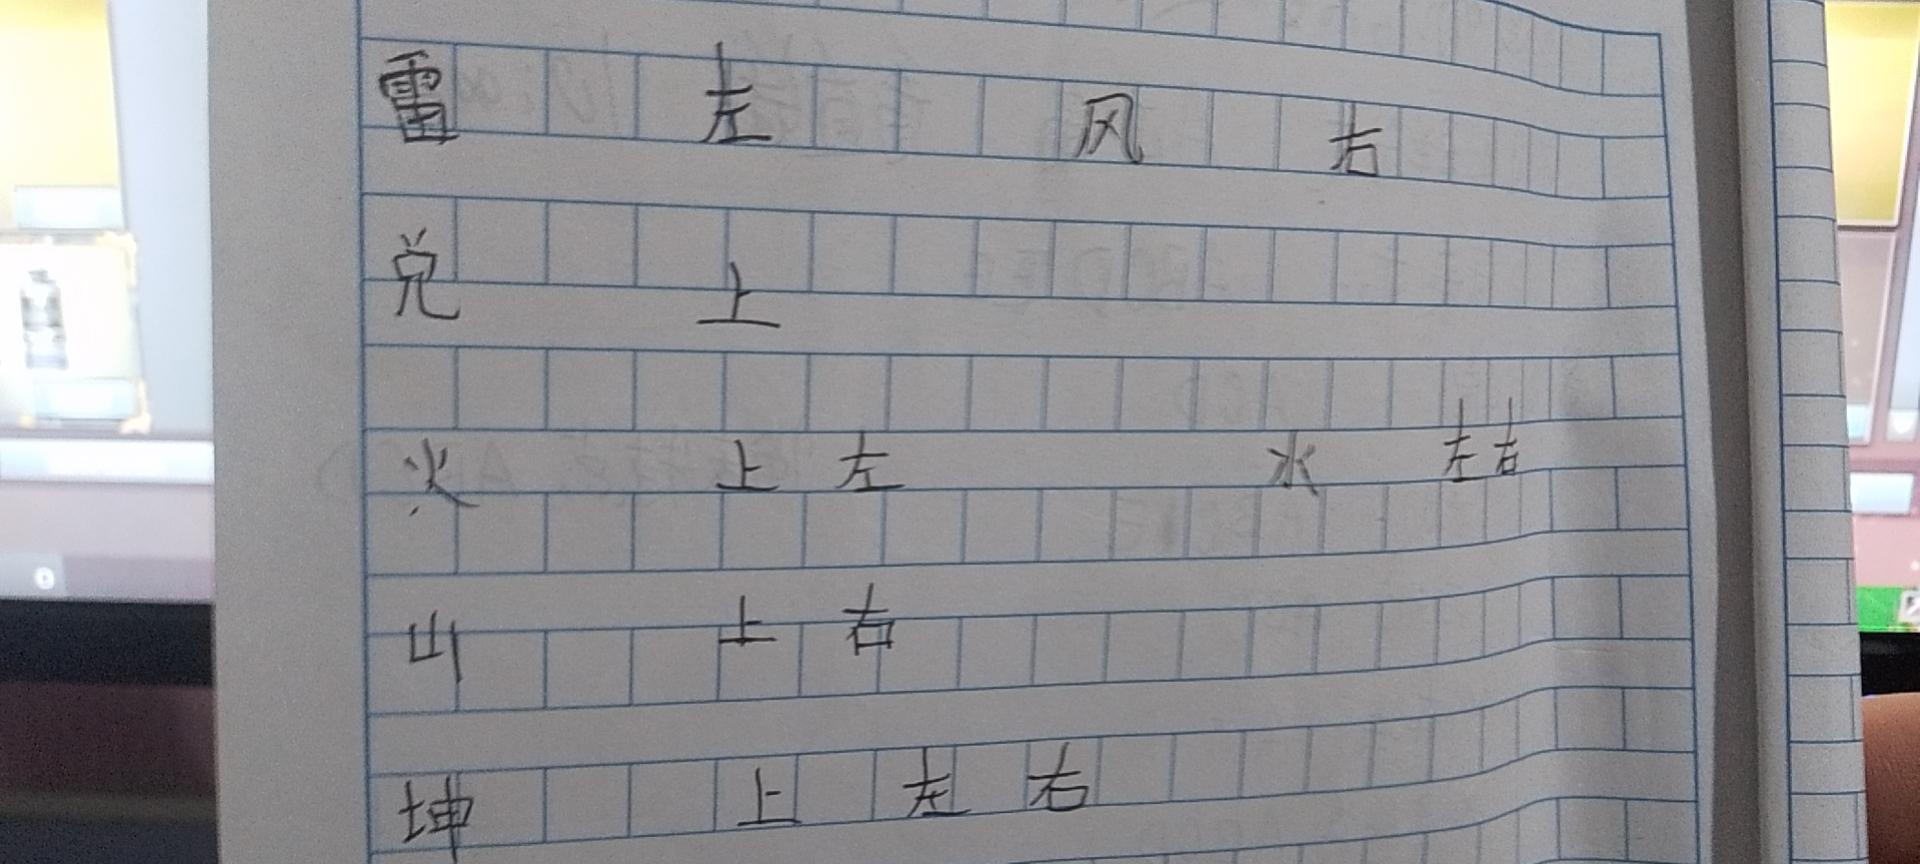 雷 左 风 右
兑 上
火 上 左 水 左右
山 上 右
坤 上 左 右